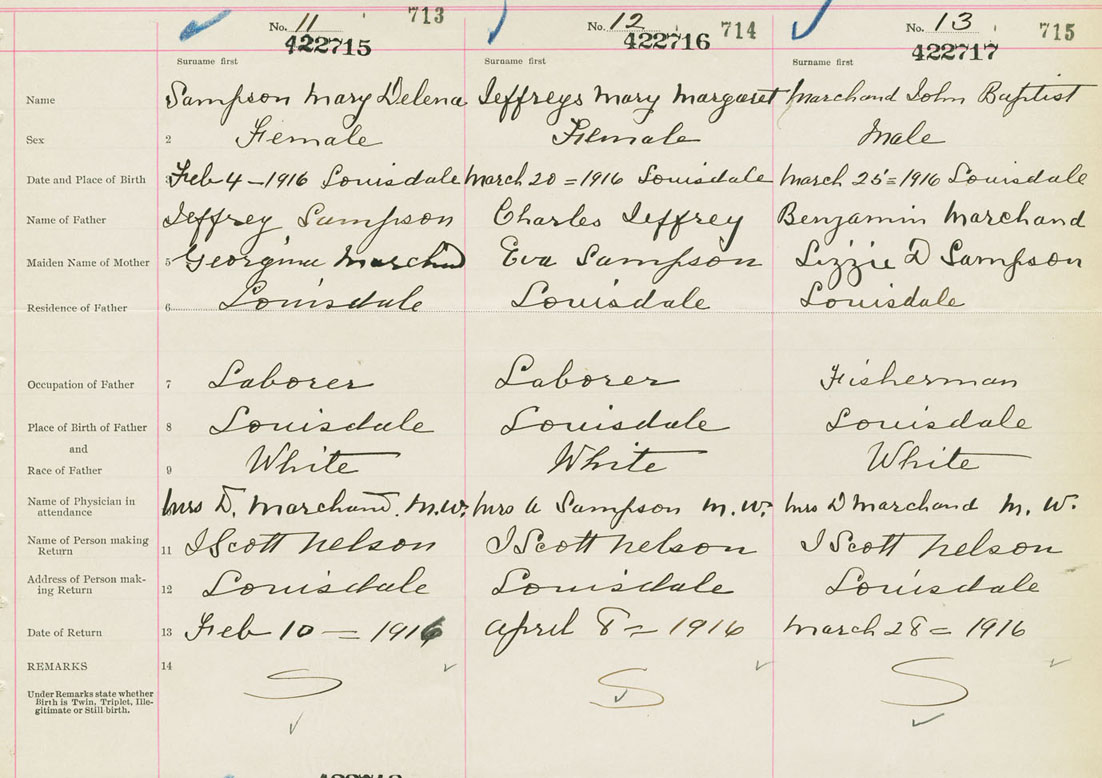 No. 11 713 No. 12 714 No. 13 715
422715 422716 422717
Surname first Surname first Surname first
Name Sampson Mary Delena Jeffreys Mary Margaret Marchand John Baptist
Sex 2 Female Female Male
Date and Place of Birth 3 Feb 4 - 1916 Louisdale March 20 = 1916 Louisdale March 25 = 1916 Louisdale
Name of Father Jeffrey Sampson Charles Jeffrey Benjamin Marchand
Maiden Name of Mother 5 Georgina Marchand Eva Sampson Lizzie D Sampson
Residence of Father 6 Louisdale Louisdale Louisdale
Occupation of Father 7 Laborer Laborer Fisherman
Place of Birth of Father 8 Louisdale Louisdale Louisdale
and
Race of Father 9 White White White
Name of Physician in attendance Mrs D. Marchand. M.W. Mrs A Sampson M.W. Mrs D Marchand M.W.
Name of Person making Return 11 J Scott Nelson J Scott Nelson J Scott Nelson
Address of Person mak-ing Return 12 Louisdale Louisdale Louisdale
Date of Return 13 Feb 10 = 1916 April 8 = 1916 March 28 = 1916
REMARKS 14 S S S
Under Remarks state whether
Birth is Twin, Triplet, Ille-
gitimate or Still birth.